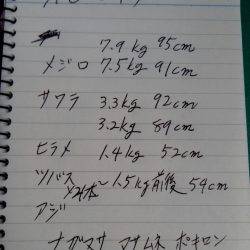 7.9kg 95cm
メジロ 7.5kg 91cm
サワラ 3.3kg 92cm
3.2kg 89cm
ヒラメ 1.4kg 52cm
ツバス ～1.5kg前後 54cm
アジ
マサムネ